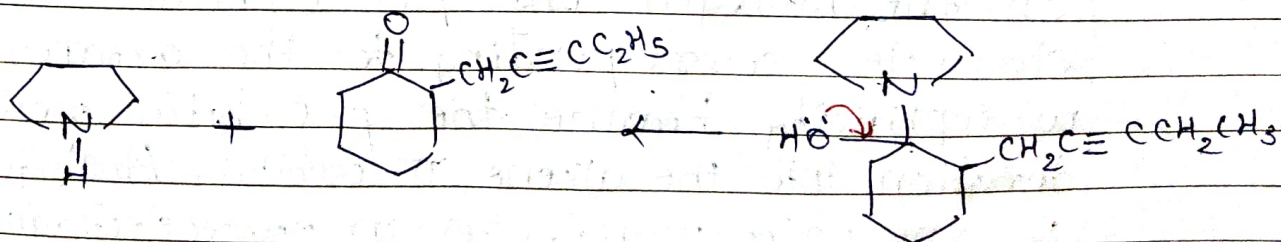 O
CH₂C≡CC₂H5
N
H
+
←
N
HÖ
CH₂C≡CCH₂CH3